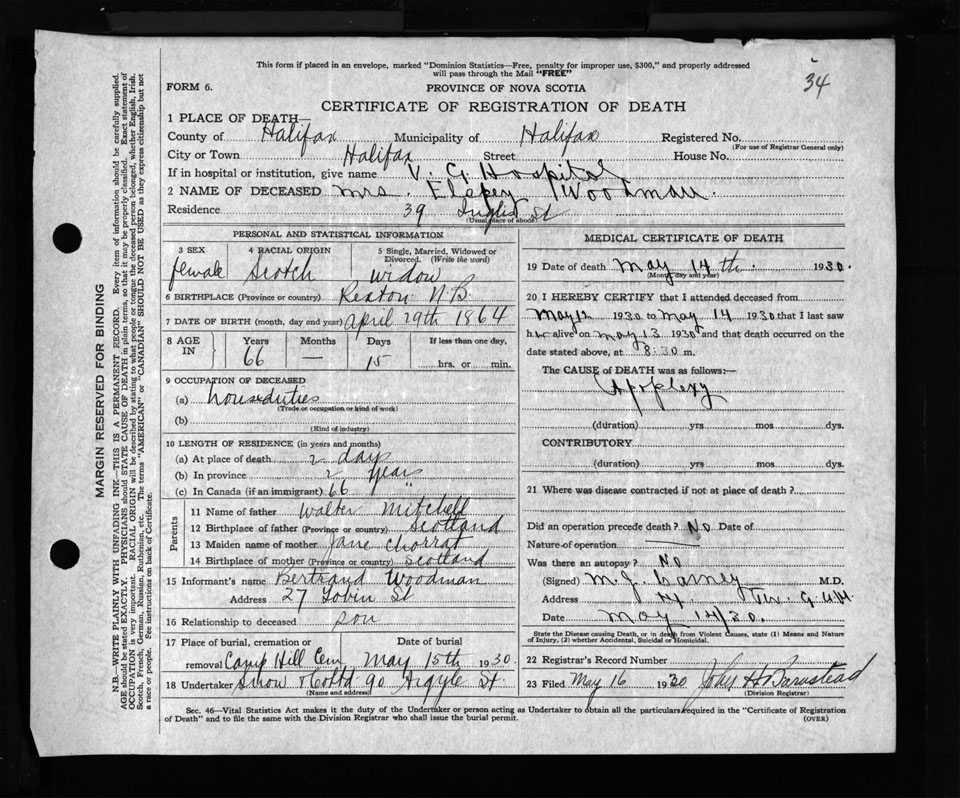 34
This form if placed in an envelope, marked "Dominion Statistics—Free, penalty for improper use, $300," and properly addressed
will pass through the Mail "FREE"
FORM 6.
PROVINCE OF NOVA SCOTIA
CERTIFICATE OF REGISTRATION OF DEATH
1 PLACE OF DEATH—
County of Halifax Municipality of Halifax Registered No.
(For use of Registrar General only)
City or Town Halifax Street House No.
If in hospital or institution, give name V. G Hospital
2 NAME OF DECEASED Mrs. Woodman
Residence 39 Inglis St
(Usual place of abode)
PERSONAL AND STATISTICAL INFORMATION
3 SEX 4 RACIAL ORIGIN 5 Single, Married, Widowed or
Divorced. (Write the word)
female Scotch widow
6 BIRTHPLACE (Province or country) Rexton N.B.
7 DATE OF BIRTH (month, day and year) April 29th 1864
8 AGE IN Years Months Days If less than one day,
66 — 15 hrs. or min.
9 OCCUPATION OF DECEASED
(a) houseduties
(Trade or occupation or kind of work)
(b)
(Kind of industry)
10 LENGTH OF RESIDENCE (in years and months)
(a) At place of death 2 days
(b) In province 2 years
(c) In Canada (if an immigrant) 66 "
Parents
11 Name of father Walter Mitchell
12 Birthplace of father (Province or country) Scotland
13 Maiden name of mother Jane
14 Birthplace of mother (Province or country) Scotland
15 Informant's name Bertrand Woodman
Address 27 Tobin St
16 Relationship to deceased son
17 Place of burial, cremation or Date of burial
removal Camp Hill Cem. May 15th 1930
18 Undertaker Snow & Co Ltd 90 Argyle St
(Name and address)
MEDICAL CERTIFICATE OF DEATH
19 Date of death May 14th 1930.
(Month, day and year)
20 I HEREBY CERTIFY that I attended deceased from
May 12 1930 to May 14 1930 that I last saw
her alive on May 13 1930 and that death occurred on
date stated above, at 8:30 m.
The CAUSE OF DEATH was as follows:—
Apoplexy
(duration) yrs mos dys.
CONTRIBUTORY
(duration) yrs mos dys.
21 Where was disease contracted if not at place of death?
Did an operation precede death? No Date of
Nature of operation
Was there an autopsy? No
(Signed) M. J. Carney M.D.
Address
Date May 14/30.
State the Disease causing Death, or in death from Violent Causes, state (1) Means and Nature
of Injury, (2) whether Accidental, Suicidal or Homicidal.
22 Registrar's Record Number
23 Filed May 16 1930 John H Barnstead
(Division Registrar)
Sec. 46—Vital Statistics Act makes it the duty of the Undertaker or person acting as Undertaker to obtain all the particulars required in the "Certificate of Registration
of Death" and to file the same with the Division Registrar who shall issue the burial permit.
(OVER)
MARGIN RESERVED FOR BINDING
N.B.—WRITE PLAINLY WITH UNFADING INK—THIS IS A PERMANENT RECORD. Every item of information should be carefully supplied.
AGE should be stated EXACTLY. PHYSICIANS should STATE CAUSE OF DEATH in plain terms, so that it may be properly classified. Exact statement of
OCCUPATION is very important. RACIAL ORIGIN will be described by stating to what people or tongue the deceased person belonged, whether English, Irish,
Scotch, French, German, Russian, Ruthenian, etc. The terms "AMERICAN" or "CANADIAN" SHOULD NOT BE USED as they express citizenship but not
a race or people. See instructions on back of Certificate.